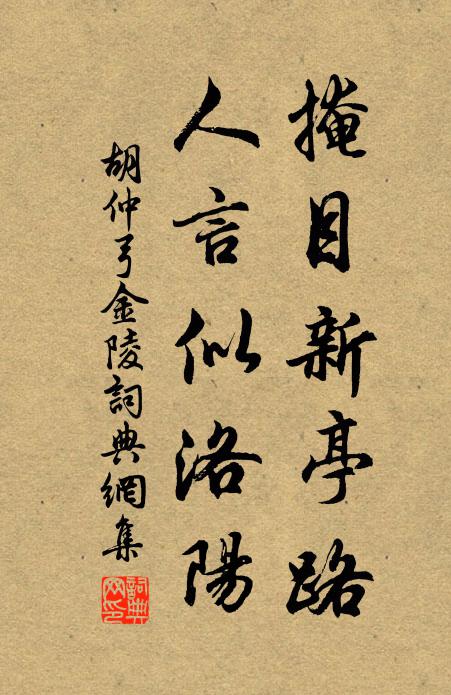 掩目新亭路
人言似洛陽
胡仲弓金陵詞典網集
詞典
网印